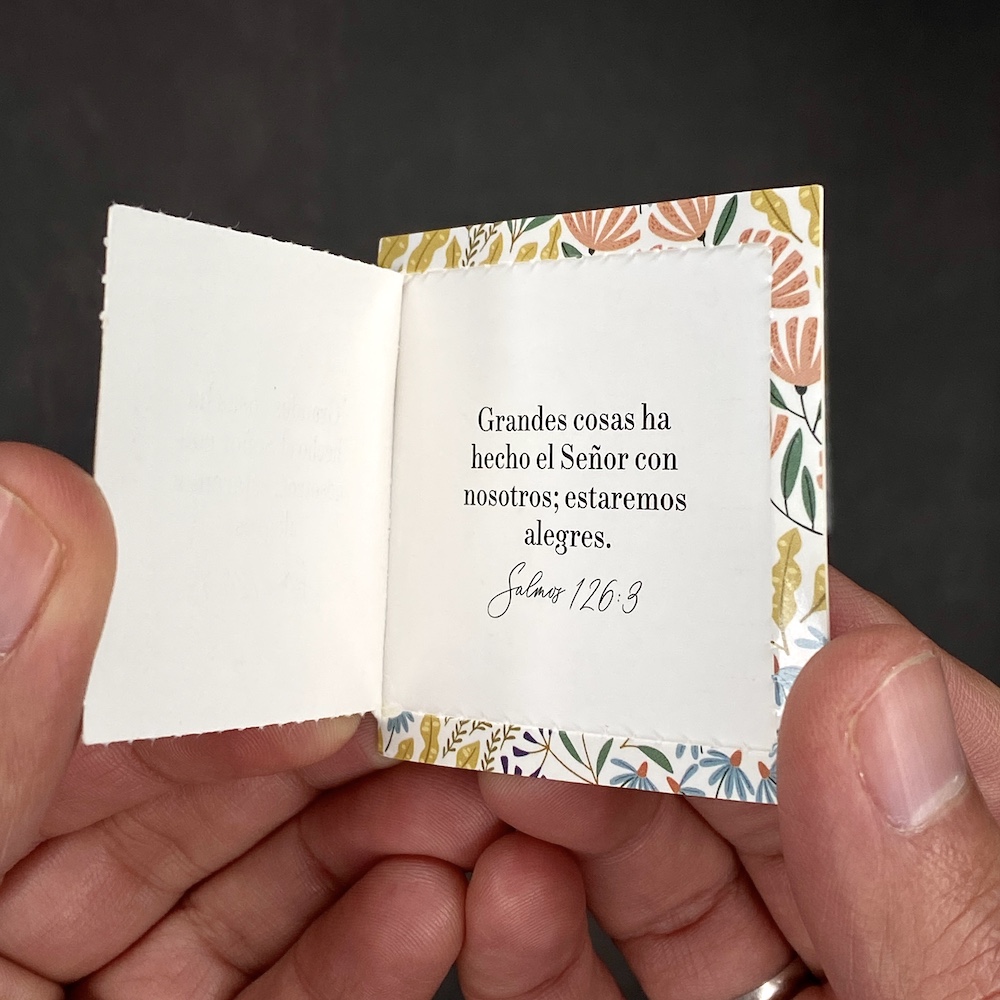 Grandes cosas ha
hecho el Señor con
nosotros; estaremos
alegres.
Salmos 126:3